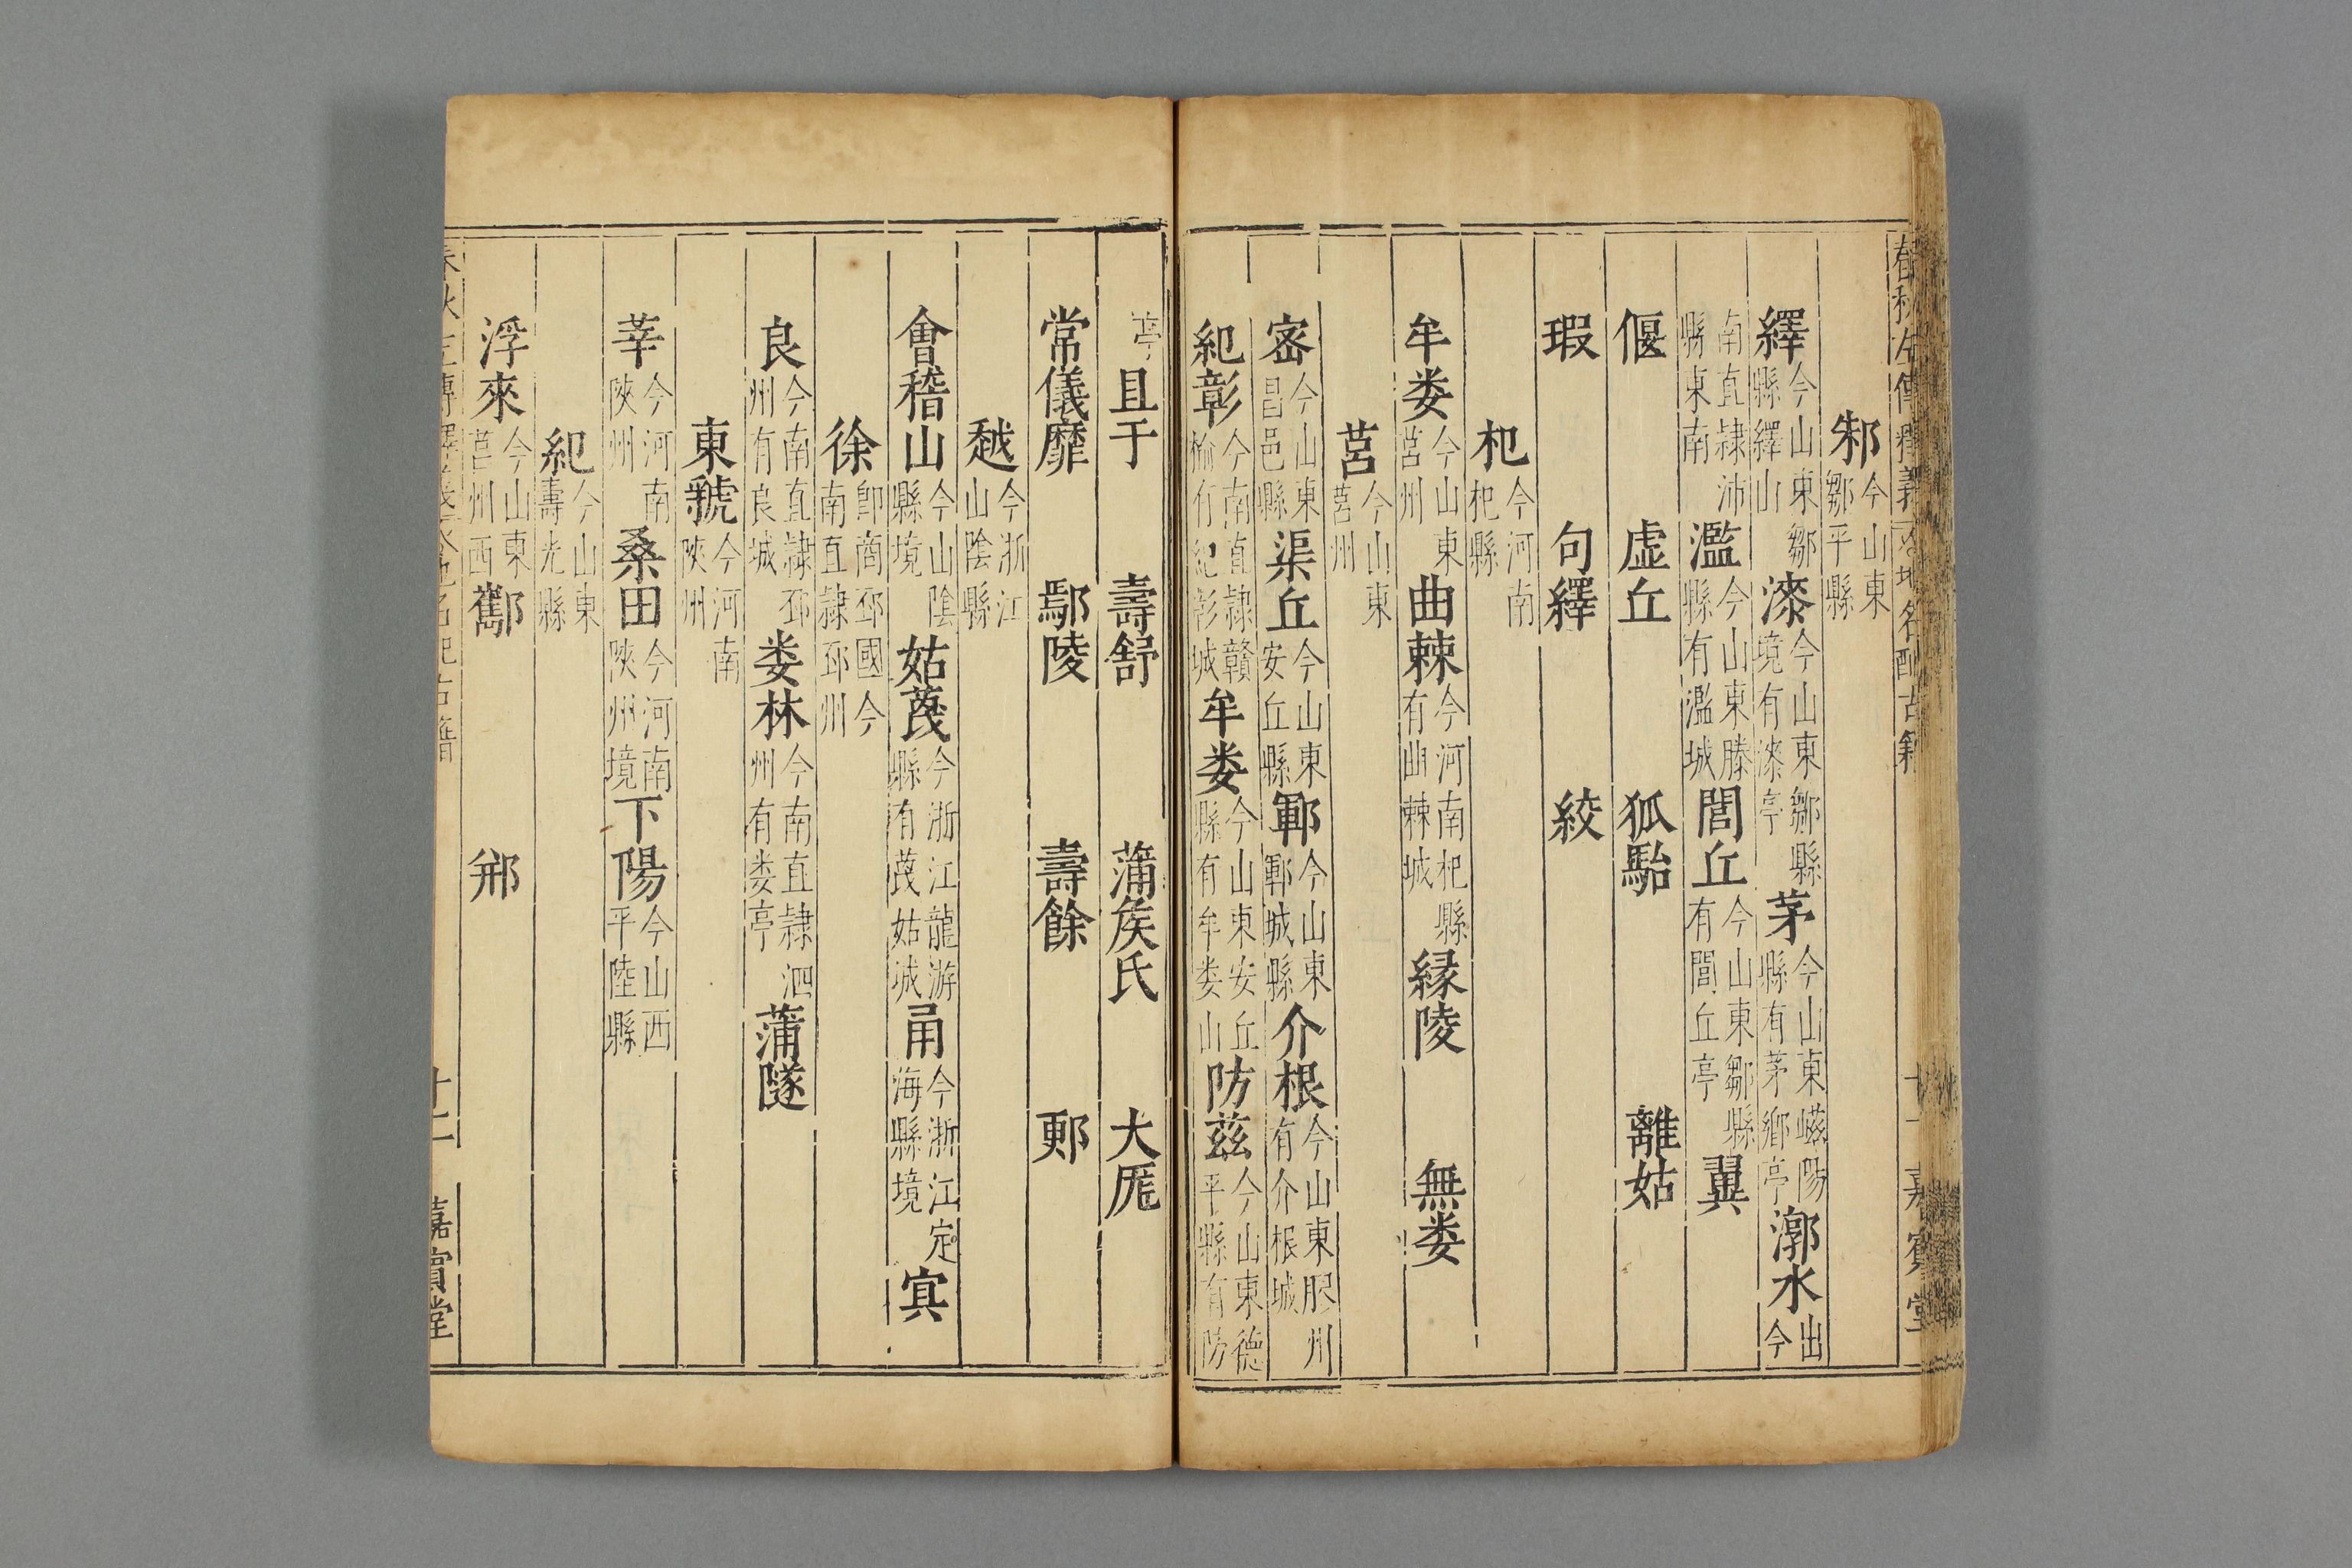 春秋左傳釋義 地名配古籍 十一 嘉賓堂
邾今山東鄒平縣
繹今山東鄒縣繹山 漆今山東鄒縣境有漆亭 茅今山東嶧陽縣有茅鄉亭 漷水出今
南直隸沛縣東南 濫今山東滕縣有濫城 閭丘今山東鄒縣有閭丘亭 翼
偃 虛丘 狐駘 離姑
瑕 句繹 絞
杞今河南杞縣
牟婁今山東莒州 曲棘今河南杞縣有曲棘城 緣陵 無婁
莒今山東莒州
密今山東昌邑縣 渠丘今山東安丘縣 鄆今山東鄆城縣 介根今山東膠州有介根城
紀彰今南直隸贛榆有紀彰城 牟婁今山東安丘縣有牟婁山 防茲今山東德平縣有防
亭 且于 壽舒 蒲侯氏 大厖
常儀靡 鄢陵 壽餘 郠
越今浙江山陰縣
會稽山今山陰縣境 姑蔑今浙江龍游縣有蔑姑城 甬今浙江定海縣境 寘
徐卽商邳國今南直隸邳州
良今南直隸邳州有良城 婁林今南直隸泗州有婁亭 蒲隧
東虢今河南陝州
莘今河南陝州 桑田今河南陝州境 下陽今山西平陸縣
紀今山東壽光縣
浮來今山東莒州西 酅 郱
十一 嘉賓堂